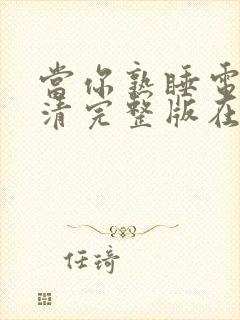 當你熟睡電
清完整版在
任琦